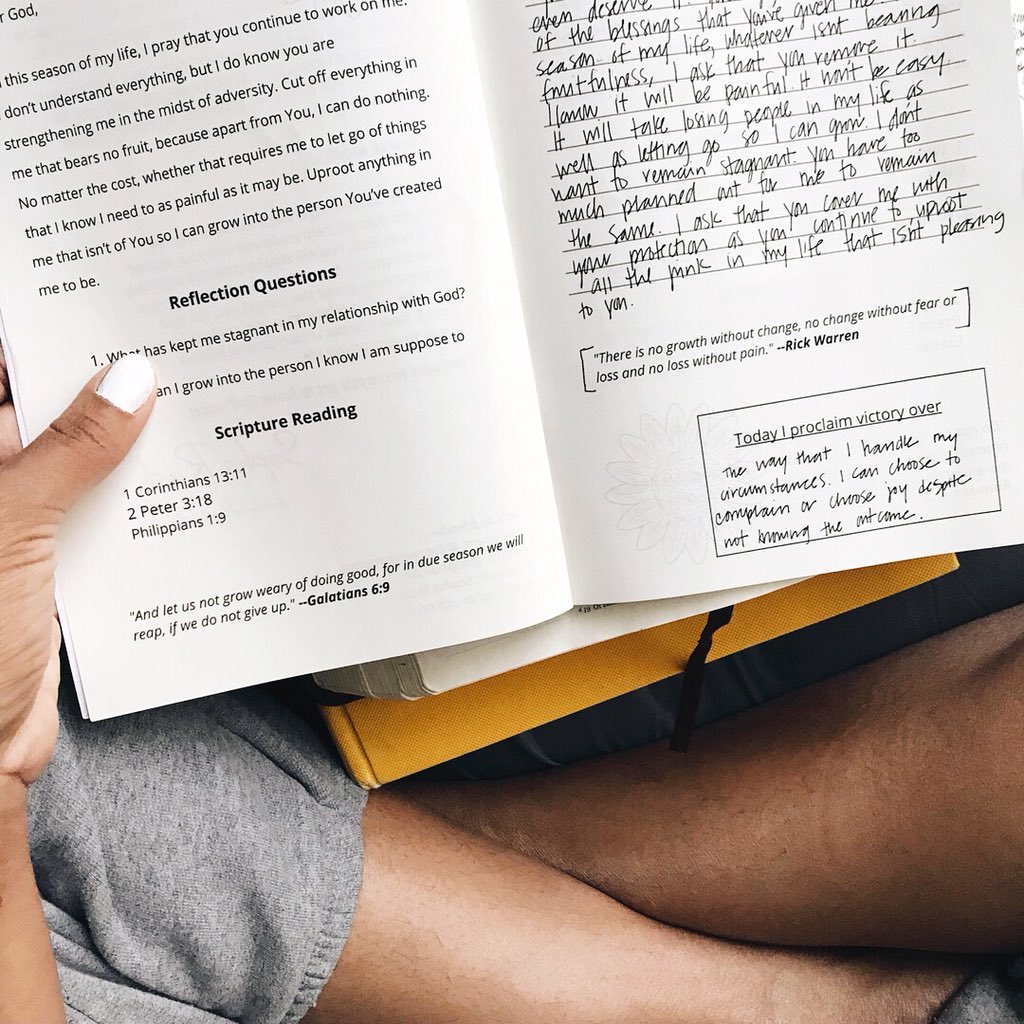 r God,
this season of my life, I pray that you continue to work on me.
don't understand everything, but I do know you are
strengthening me in the midst of adversity. Cut off everything in
me that bears no fruit, because apart from You, I can do nothing.
No matter the cost, whether that requires me to let go of things
that I know I need to as painful as it may be. Uproot anything in
me that isn't of You so I can grow into the person You've created
me to be.
Reflection Questions
1. What has kept me stagnant in my relationship with God?
an I grow into the person I know I am suppose to
Scripture Reading
1 Corinthians 13:11
2 Peter 3:18
Philippians 1:9
"And let us not grow weary of doing good, for in due season we will
reap, if we do not give up." --Galatians 6:9
even deserve it.
of the blessings that you've given me
season of my life, whatever isn't bearing
fruitfulness, I ask that you remove it.
I know it will be painful. It won't be easy
It will take losing people in my life as
well as letting go so I can grow. I don't
want to remain stagnant. You have too
much planned out for me to remain
the same. I ask that you cover me with
your protection as you continue to uproot
all the junk in my life that isn't pleasing
to you.
"There is no growth without change, no change without fear or
loss and no loss without pain." --Rick Warren
Today I proclaim victory over
The way that I handle my
circumstances. I can choose to
complain or choose joy despite
not knowing the outcome.